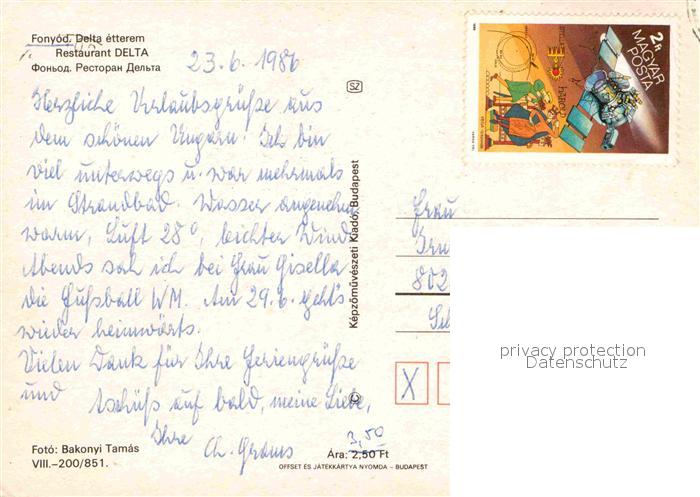 Fonyód. Delta étterem
Restaurant DELTA
Фоньод. Ресторан Дельта
23.6.1986
Herzliche Urlaubsgrüße aus
dem schönen Ungarn. Ich bin
viel unterwegs u. war mehrmals
im Strandbad. Wasser angenehm
warm, Luft 28°, leichter Wind.
Abends sah ich bei Frau Gisella
die Fußball WM. Am 29.6. geht's
wieder heimwärts.
Vielen Dank für Ihre Feriengrüße
und tschüß auf bald, meine Liebe,
Ihre
Ch. Grams
Fotó: Bakonyi Tamás
VIII.–200/851.
Ára: 2,50 Ft
3,50
OFFSET ÉS JÁTÉKKÁRTYA NYOMDA – BUDAPEST
SZ
Képzőművészeti Kiadó, Budapest
2 Ft
MAGYAR POSTA
Frau
802
X
privacy protection
Datenschutz